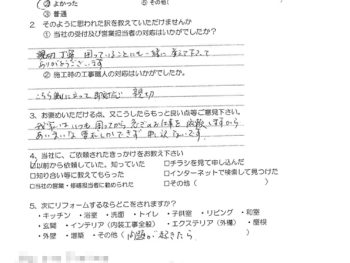 ② よかった
③ 普通
2. そのように思われた訳を教えていただけませんか
① 当社の受付及び営業担当者の対応はいかがでしたか?
親切 丁寧 困っていることにも一緒に考えて下さって
ありがとうございます
② 施工時の工事職人の対応はいかがでしたか。
こちら側に立って 即対応 親切
3. お褒めいただける点、又こうしたらもっと良い点等ご意見下さい。
我家はいつも困ってから急ぎのお仕事を依頼しますから
申し訳ないです
4. 当社に、ご依頼されたきっかけをお教え下さい
☑以前から依頼していた。知っていた □チラシを見て申し込んだ
□知り合い等に教えてもらった □インターネットで検索して見つけた
□当社の営業・修繕担当者に勧められた □その他( )
5. 次にリフォームするならどこをされますか?
・キッチン ・浴室 ・洗面 ・トイレ ・子供室 ・リビング ・和室
・玄関 ・インテリア(内装工事全般) ・エクステリア(外構) ・屋根
・外壁 ・増築 ・その他( 問題が起きたら )